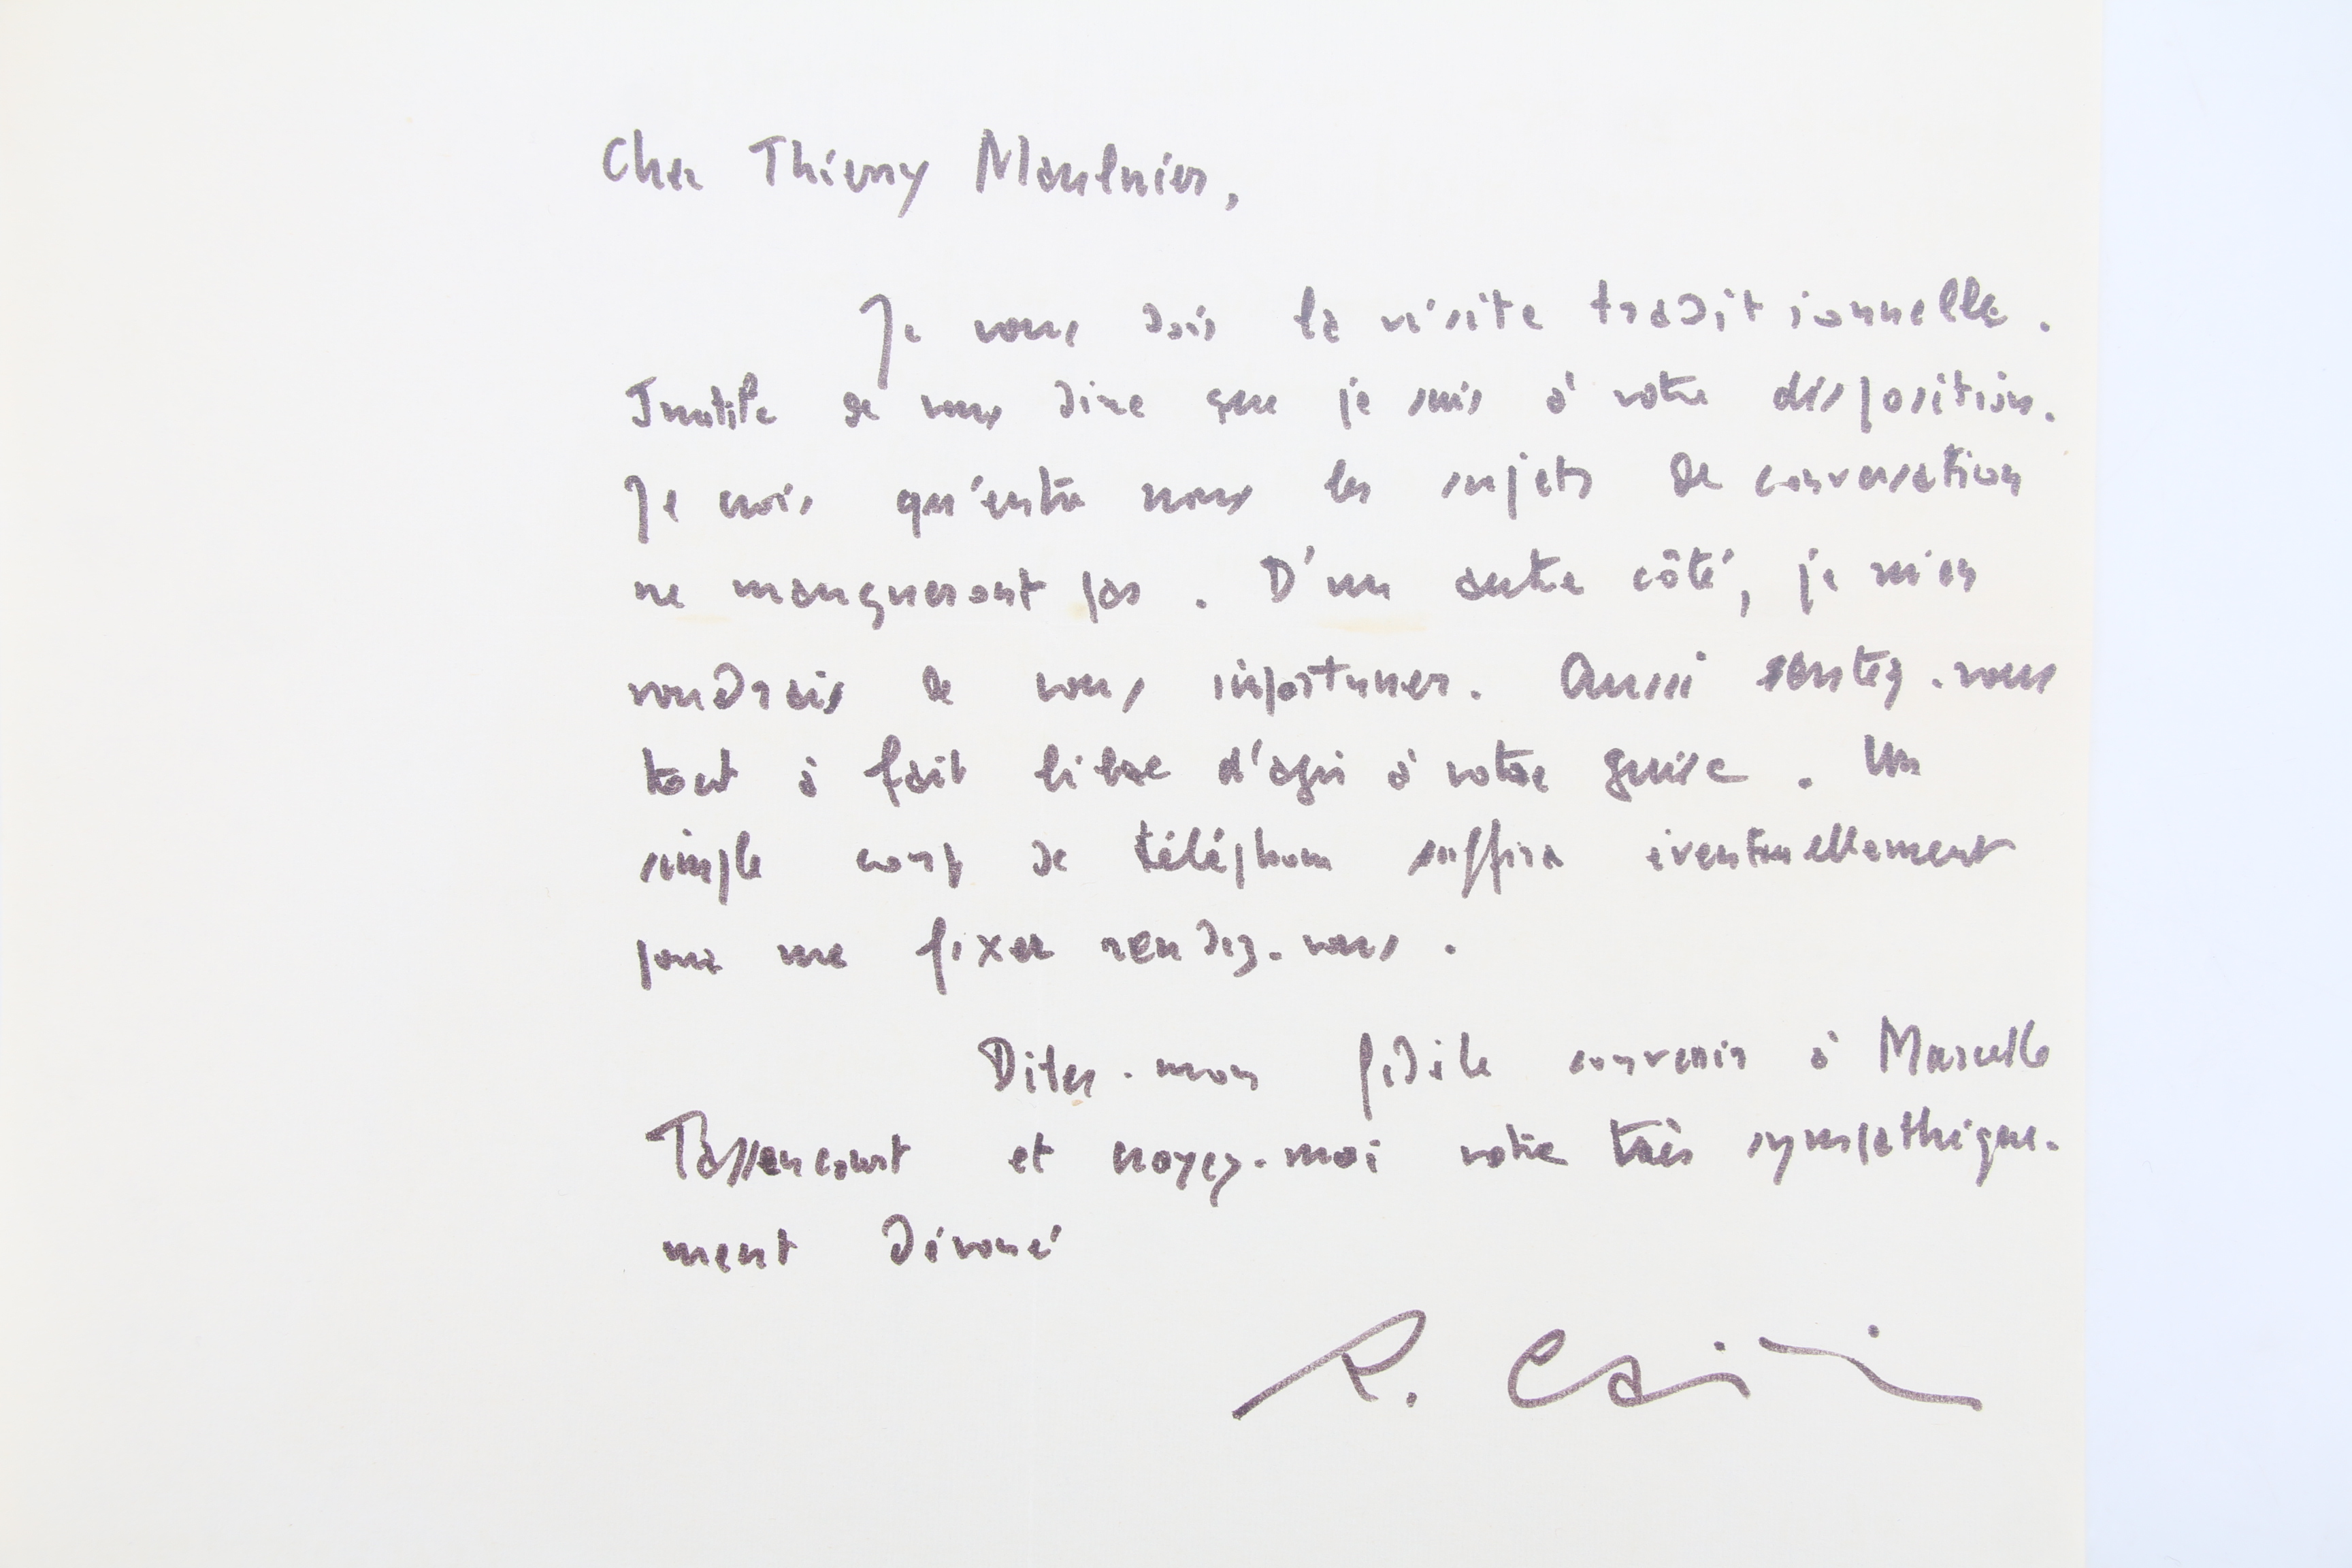 Cher Thierry Maulnier,
Je vous dois la visite traditionnelle.
Inutile de vous dire que je suis à votre disposition.
Je crois qu'entre nous les sujets de conversation
ne manqueront pas. D'un autre côté, je m'en
voudrais de vous importuner. Aussi sentez-vous
tout à fait libre d'agir à votre guise. Un
simple coup de téléphone suffira éventuellement
pour me fixer rendez-vous.
Dites-mon fidèle souvenir à Marcelle
Tassencourt et croyez-moi votre très sympathique-
ment dévoué
R. Caillois